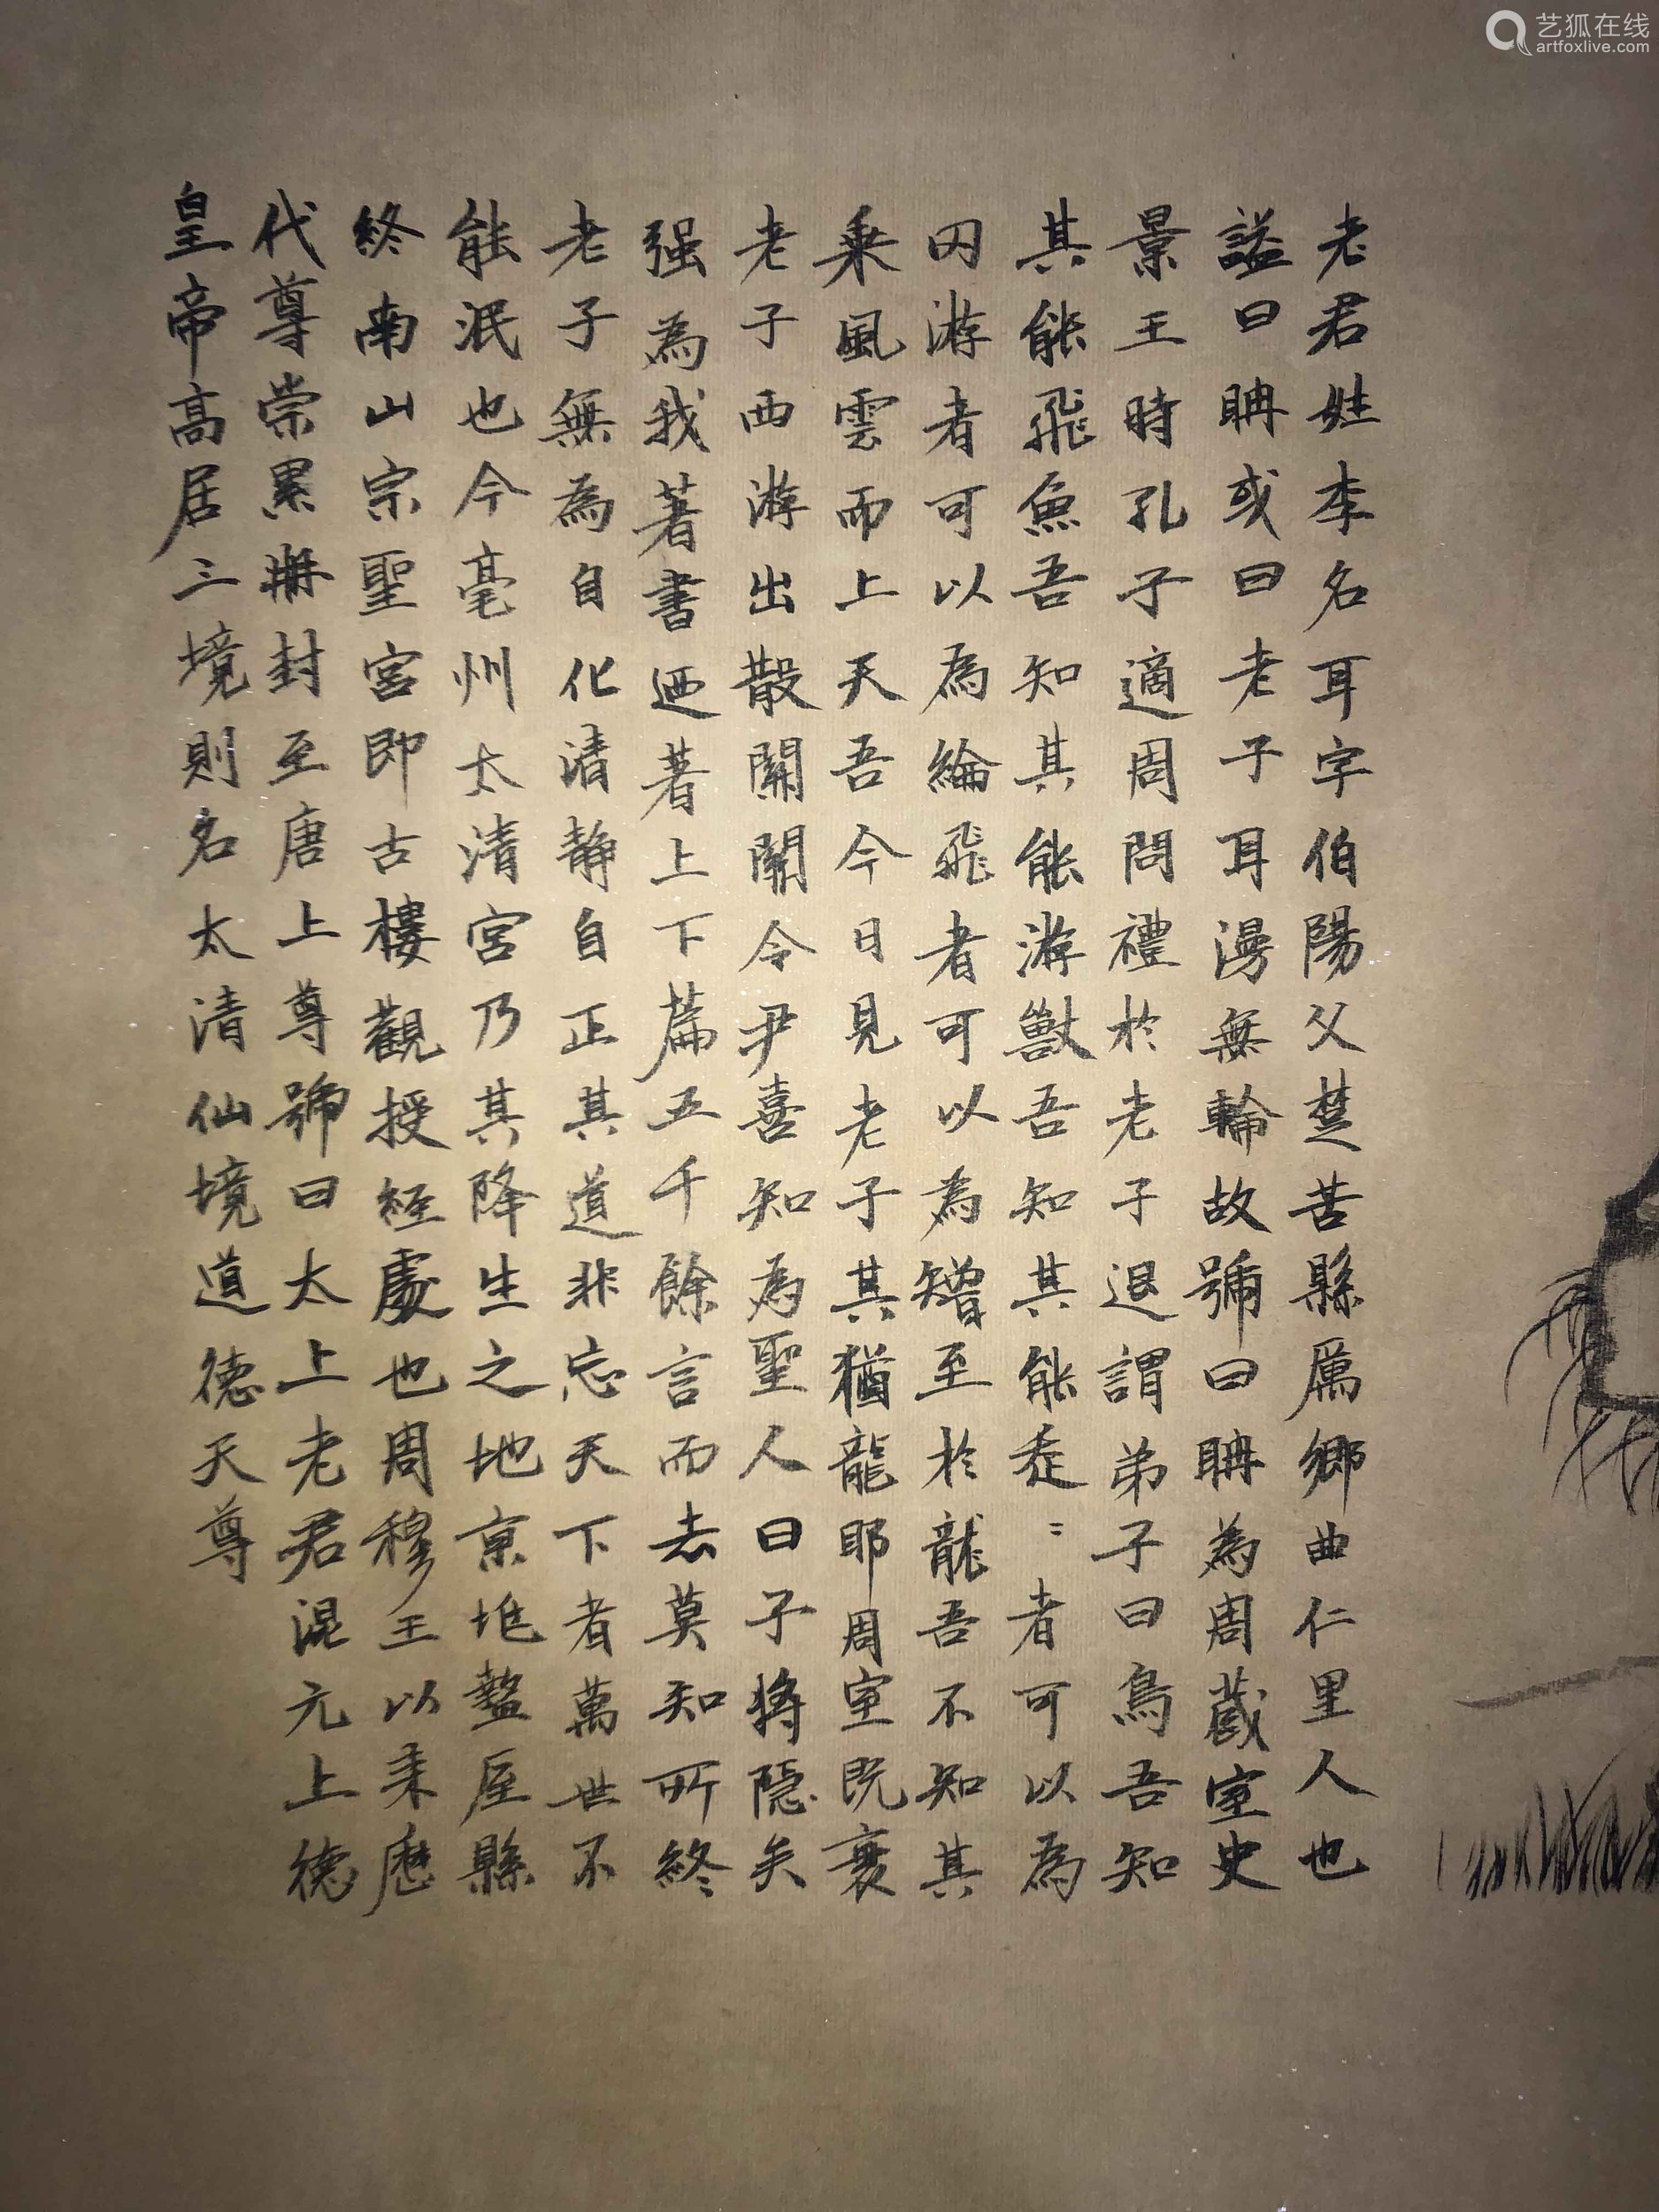 老君姓李名耳字伯陽父楚苦縣厲鄉曲仁里人也
謚曰聃或曰老子耳漫無輪故號曰聃為周藏室史
景王時孔子適周問禮於老子退謂弟子曰鳥吾知
其能飛魚吾知其能游獸吾知其能走〻者可以為
罔游者可以為綸飛者可以為矰至於龍吾不知其
乘風雲而上天吾今日見老子其猶龍耶周室既衰
老子西游出散關關令尹喜知為聖人曰子將隱矣
强為我著書迺著上下篇五千餘言而去莫知所終
老子無為自化清靜自正其道非忘天下者萬世不
能泯也今亳州太清宮乃其降生之地京兆盩厔縣
終南山宗聖宮即古樓觀授經處也周穆王以來歷
代尊崇累冊封至唐上尊號曰太上老君混元上德
皇帝高居三境則名太清仙境道德天尊
艺狐在线
artfoxlive.com